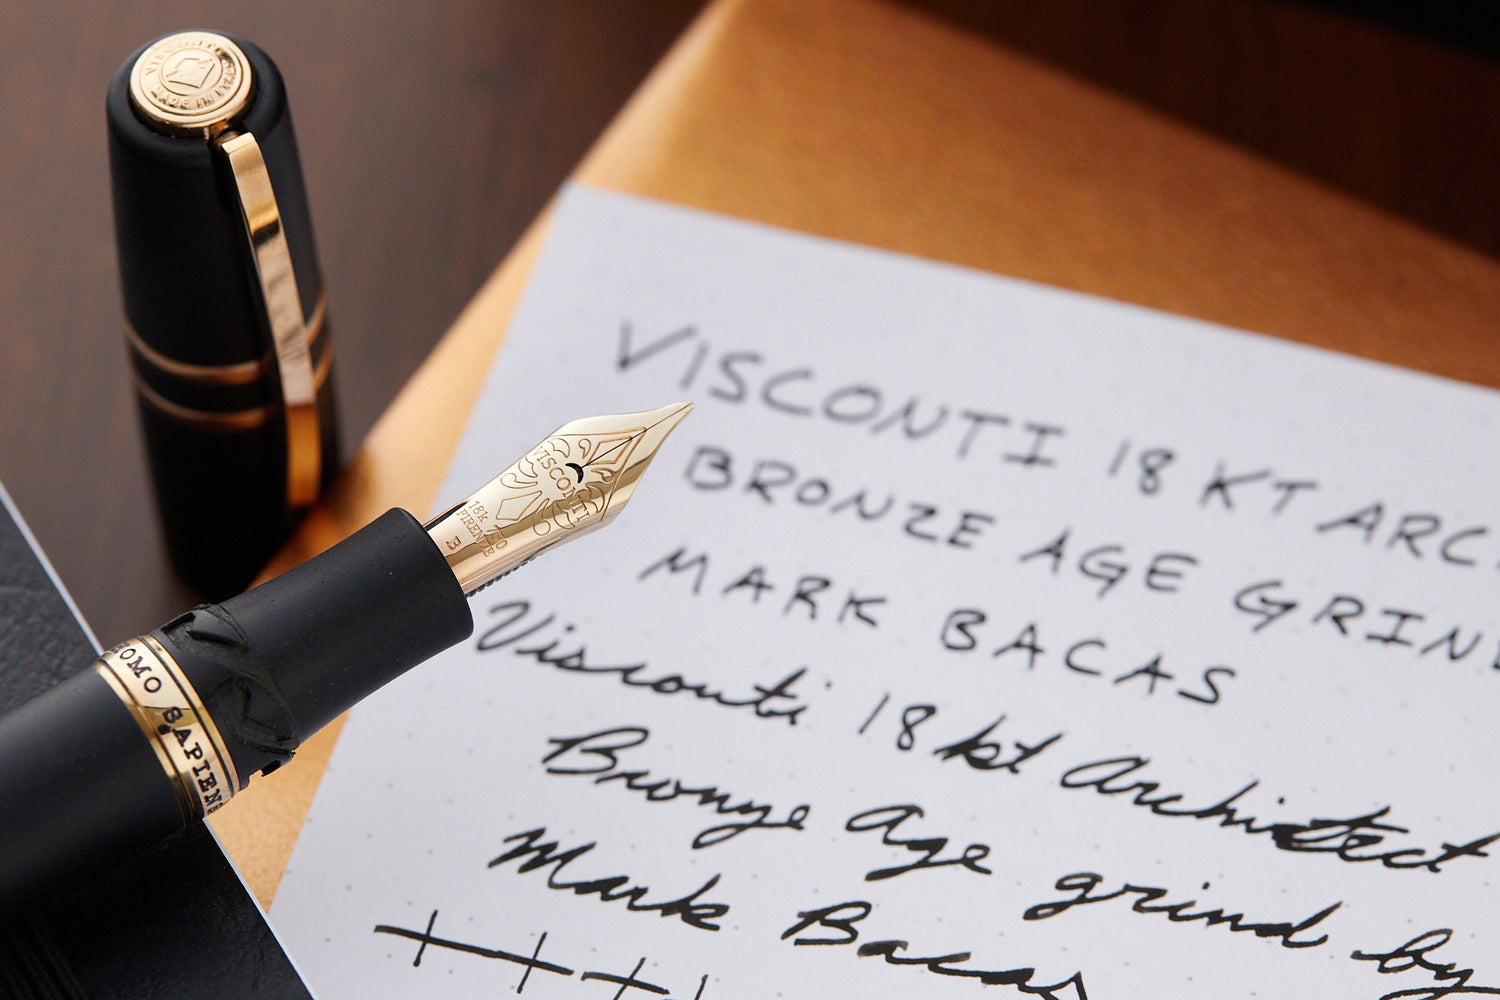 VISCONTI
MADE IN ITALY
VISCONTI 18 KT ARC
BRONZE AGE GRIND
MARK BACAS
VISCONTI
18k 750
FIRENZE
B
HOMO SAPIENS
Visconti 18 kt Architect
Bronze Age grind by
Mark Bacas